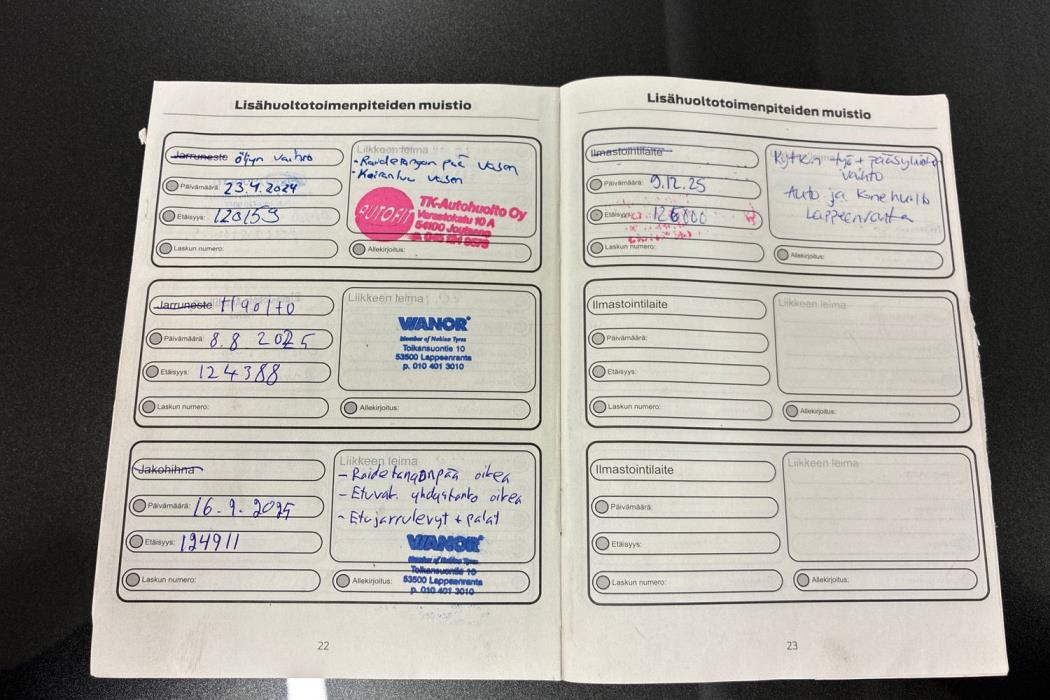 Lisähuoltotoimenpiteiden muistio
Jarruneste öljyn vaihto
Päivämäärä: 23.4.2024
Etäisyys: 120153
Laskun numero:
Liikkeen leima
- Raidetangon pää vasen
- Koiranluu vasen
AUTOFIT
TK-Autohuolto Oy
Varastokatu 10 A
54100 Joutseno
Allekirjoitus:
Jarruneste Huolto
Päivämäärä: 8.8 2025
Etäisyys: 124388
Laskun numero:
Liikkeen leima
WANOR
Member of Nokian Tyres
Toikansuontie 10
53500 Lappeenranta
p. 010 401 3010
Allekirjoitus:
Jakohihna
Päivämäärä: 16.9.2025
Etäisyys: 124911
Laskun numero:
Liikkeen leima
- Raidetangonpää oikea
- Etuvak. yhdystanko oikea
- Etujarrulevyt + palat
WANOR
Member of Nokian Tyres
Toikansuontie 10
53500 Lappeenranta
p. 010 401 3010
Allekirjoitus:
22
Lisähuoltotoimenpiteiden muistio
Ilmastointilaite
Päivämäärä: 9.12.25
Etäisyys: 126800
Laskun numero:
Kytkin työ + pääsylinteri
vaihto
Auto ja Konehuolto
Lappeenranta
Allekirjoitus:
Ilmastointilaite
Päivämäärä:
Etäisyys:
Laskun numero:
Liikkeen leima
Allekirjoitus:
Ilmastointilaite
Päivämäärä:
Etäisyys:
Laskun numero:
Liikkeen leima
Allekirjoitus:
23